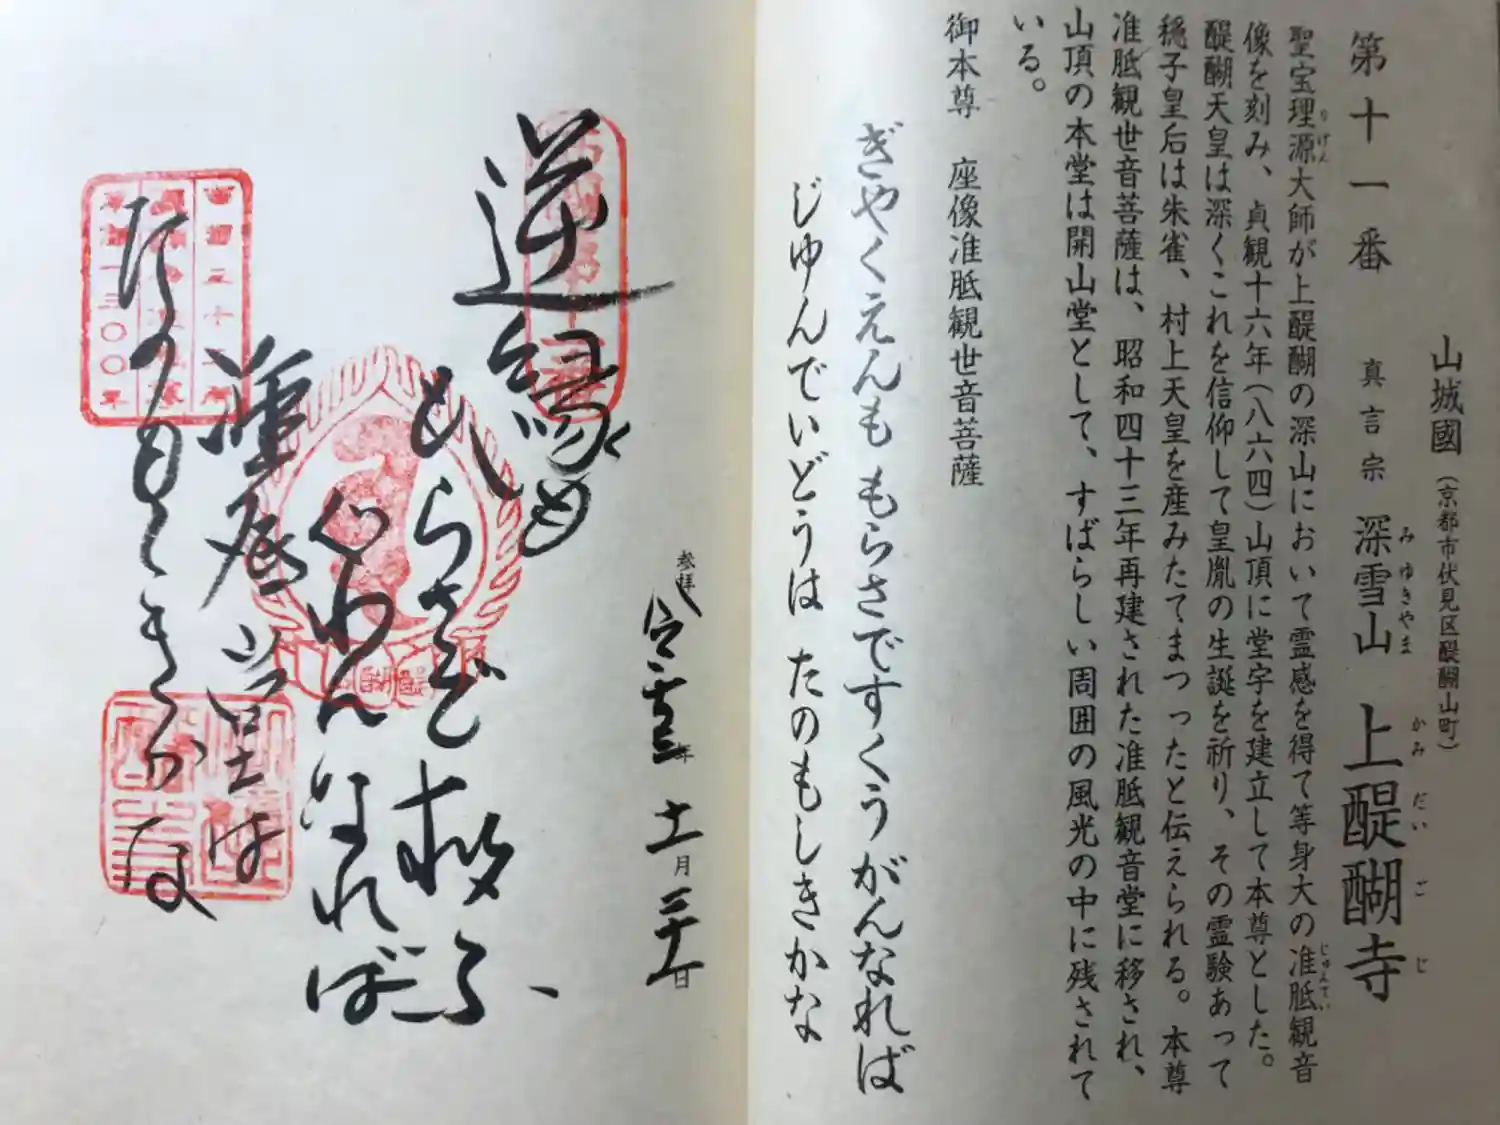 山城國(京都市伏見区醍醐山町)
第十一番 真言宗 深雪山 上醍醐寺
みゆきやま かみだいごじ
聖宝理源大師が上醍醐の深山において霊感を得て等身大の准胝観音
りげん じゅんてい
像を刻み、貞観十六年(八六四)山頂に堂宇を建立して本尊とした。
醍醐天皇は深くこれを信仰して皇胤の生誕を祈り、その霊験あって
穏子皇后は朱雀、村上天皇を産みたてまつったと伝えられる。本尊
准胝観世音菩薩は、昭和四十三年再建された准胝観音堂に移され、
山頂の本堂は開山堂として、すばらしい周囲の風光の中に残されて
いる。
御本尊 座像准胝観世音菩薩
ぎやくえんも もらさですくうがんなれば
じゆんでいどうは たのもしきかな
参拝 年 十一月 日
逆縁も
もらさで救ふ
なれば
堂は